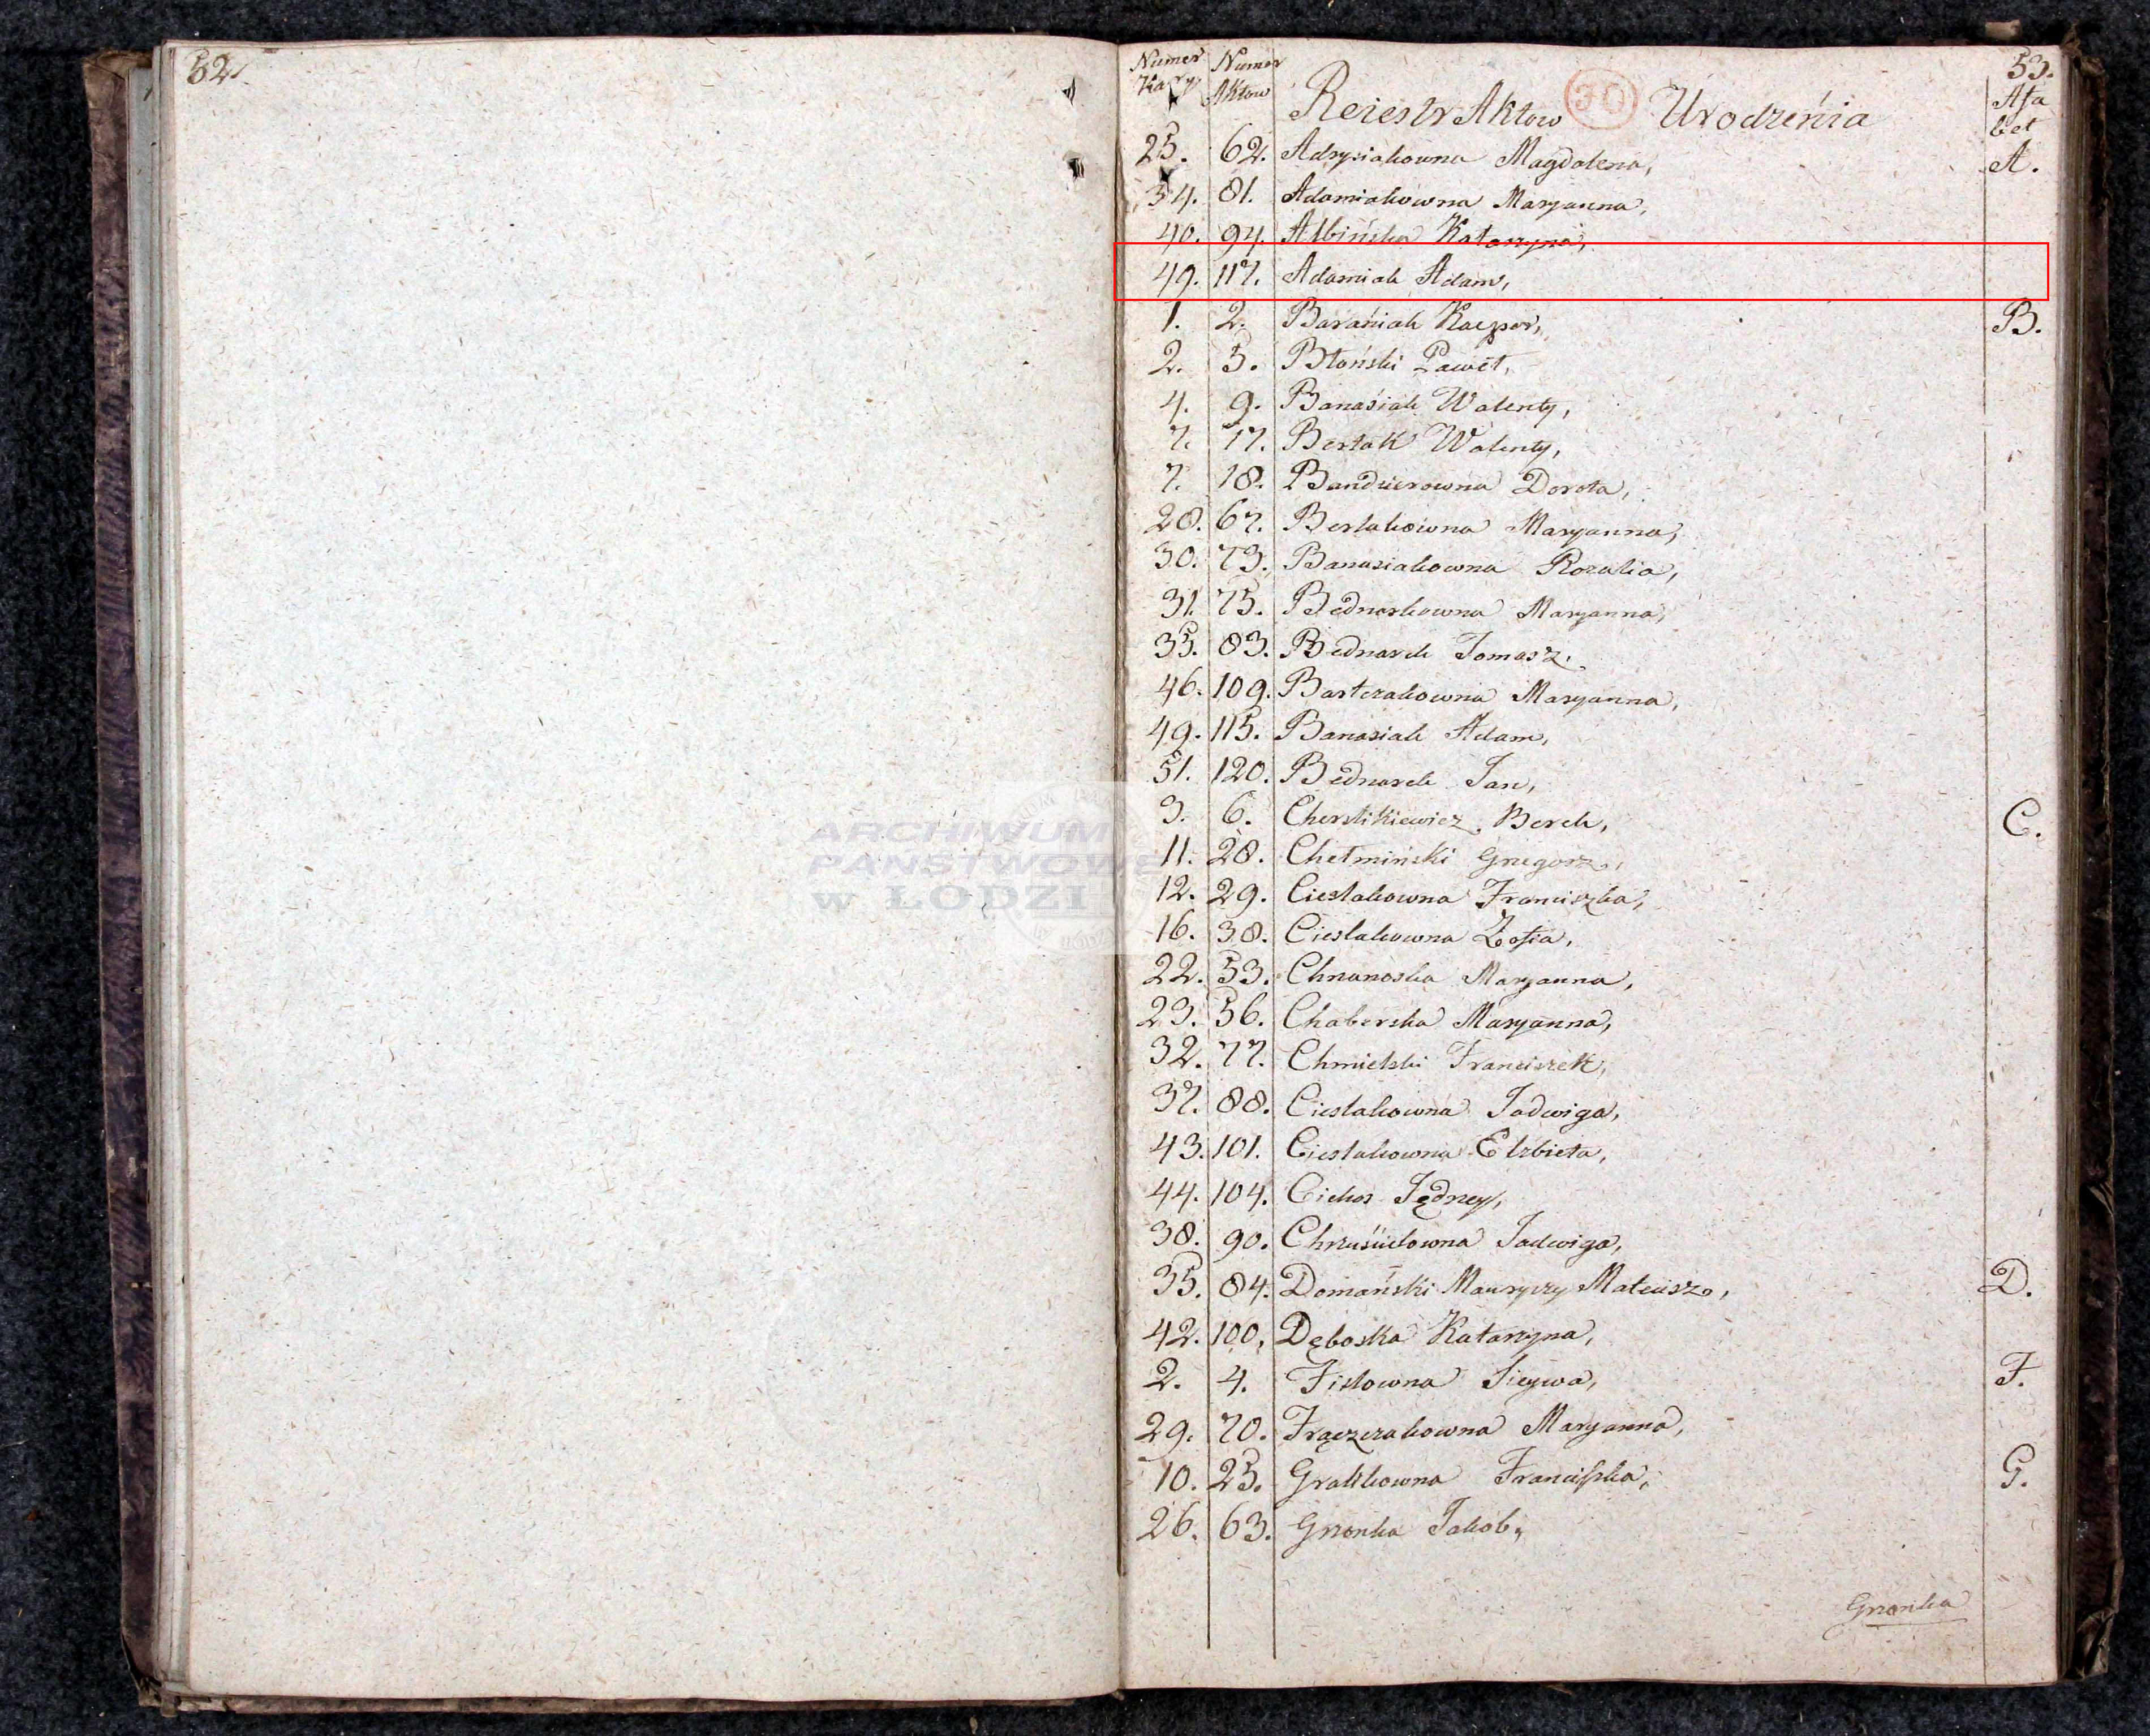 52.
53.
Numer Karty Numer Aktow Reiestr Aktow Urodzenia Alfabet
25. 62. Adrysiakowna Magdalena, A.
34. 81. Adamiakowna Maryanna,
40. 94. Albińska Katarzyna,
49. 117. Adamiak Adam,
1. 2. Baraniak Kacper, B.
2. 5. Błoński Paweł,
4. 9. Banasiak Walenty,
7. 17. Berlak Walenty,
7. 18. Bandzierowna Dorota,
28. 67. Berlakowna Maryanna,
30. 73. Banasiakowna Rozalia,
31. 75. Bednarkowna Maryanna,
35. 83. Bednarek Tomasz,
46. 109. Bartczakowna Maryanna,
49. 115. Banasiak Adam,
51. 120. Bednarek Jan,
3. 6. Berek, C.
11. 28. Chełmiński Grzegorz,
12. 29. Cieslakowna Franciszka,
16. 38. Cieslakowna Zofia,
22. 53. Maryanna,
23. 56. Chaberska Maryanna,
32. 77. Chmielski Franciszek,
37. 88. Cieslakowna Jadwiga,
43. 101. Cieslakowna Elzbieta,
44. 104. Cichos Jędrzey,
38. 90. Jadwiga,
35. 84. Domański Maurycy Mateusz, D.
42. 100. Dęboska Katarzyna,
2. 4. F.
29. 70. Frączczakowna Maryanna,
10. 25. Franciszka, G.
26. 63. Gronka Jakób,
Gronka
ARCHIWUM
PAŃSTWOWE
w ŁODZI